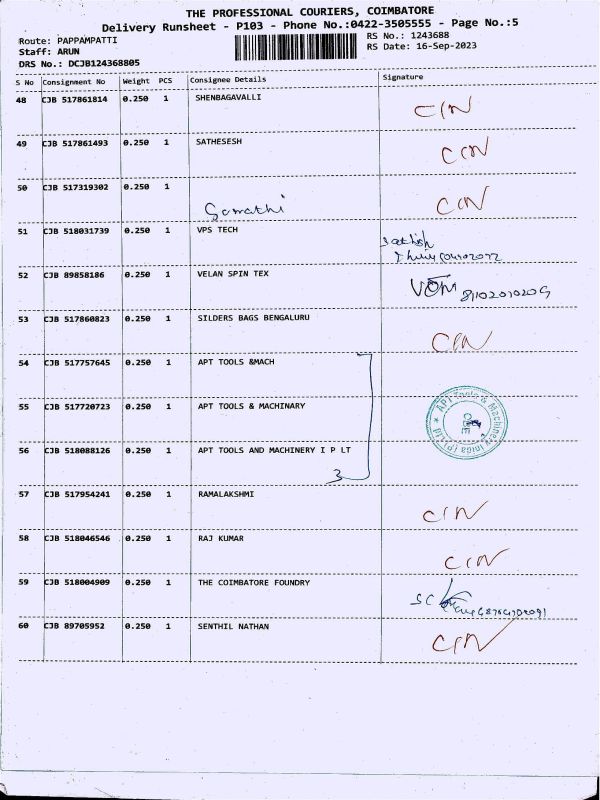 THE PROFESSIONAL COURIERS, COIMBATORE
Delivery Runsheet - P103 - Phone No.:0422-3505555 - Page No.:5
Route: PAPPAMPATTI
Staff: ARUN
DRS No.: DCJB124368805
RS No.: 1243688
RS Date: 16-Sep-2023
S No Consignment No Weight PCS Consignee Details Signature
48 CJB 517861814 0.250 1 SHENBAGAVALLI CIN
49 CJB 517861493 0.250 1 SATHESESH CIN
50 CJB 517319302 0.250 1 CIN
Gomathi
51 CJB 518031739 0.250 1 VPS TECH
52 CJB 89858186 0.250 1 VELAN SPIN TEX
53 CJB 517860823 0.250 1 SILDERS BAGS BENGALURU CIN
54 CJB 517757645 0.250 1 APT TOOLS &MACH
55 CJB 517720723 0.250 1 APT TOOLS & MACHINARY
56 CJB 518088126 0.250 1 APT TOOLS AND MACHINERY I P LT
3
57 CJB 517954241 0.250 1 RAMALAKSHMI CIN
58 CJB 518046546 0.250 1 RAJ KUMAR CIN
59 CJB 518004909 0.250 1 THE COIMBATORE FOUNDRY
60 CJB 89705952 0.250 1 SENTHIL NATHAN CIN